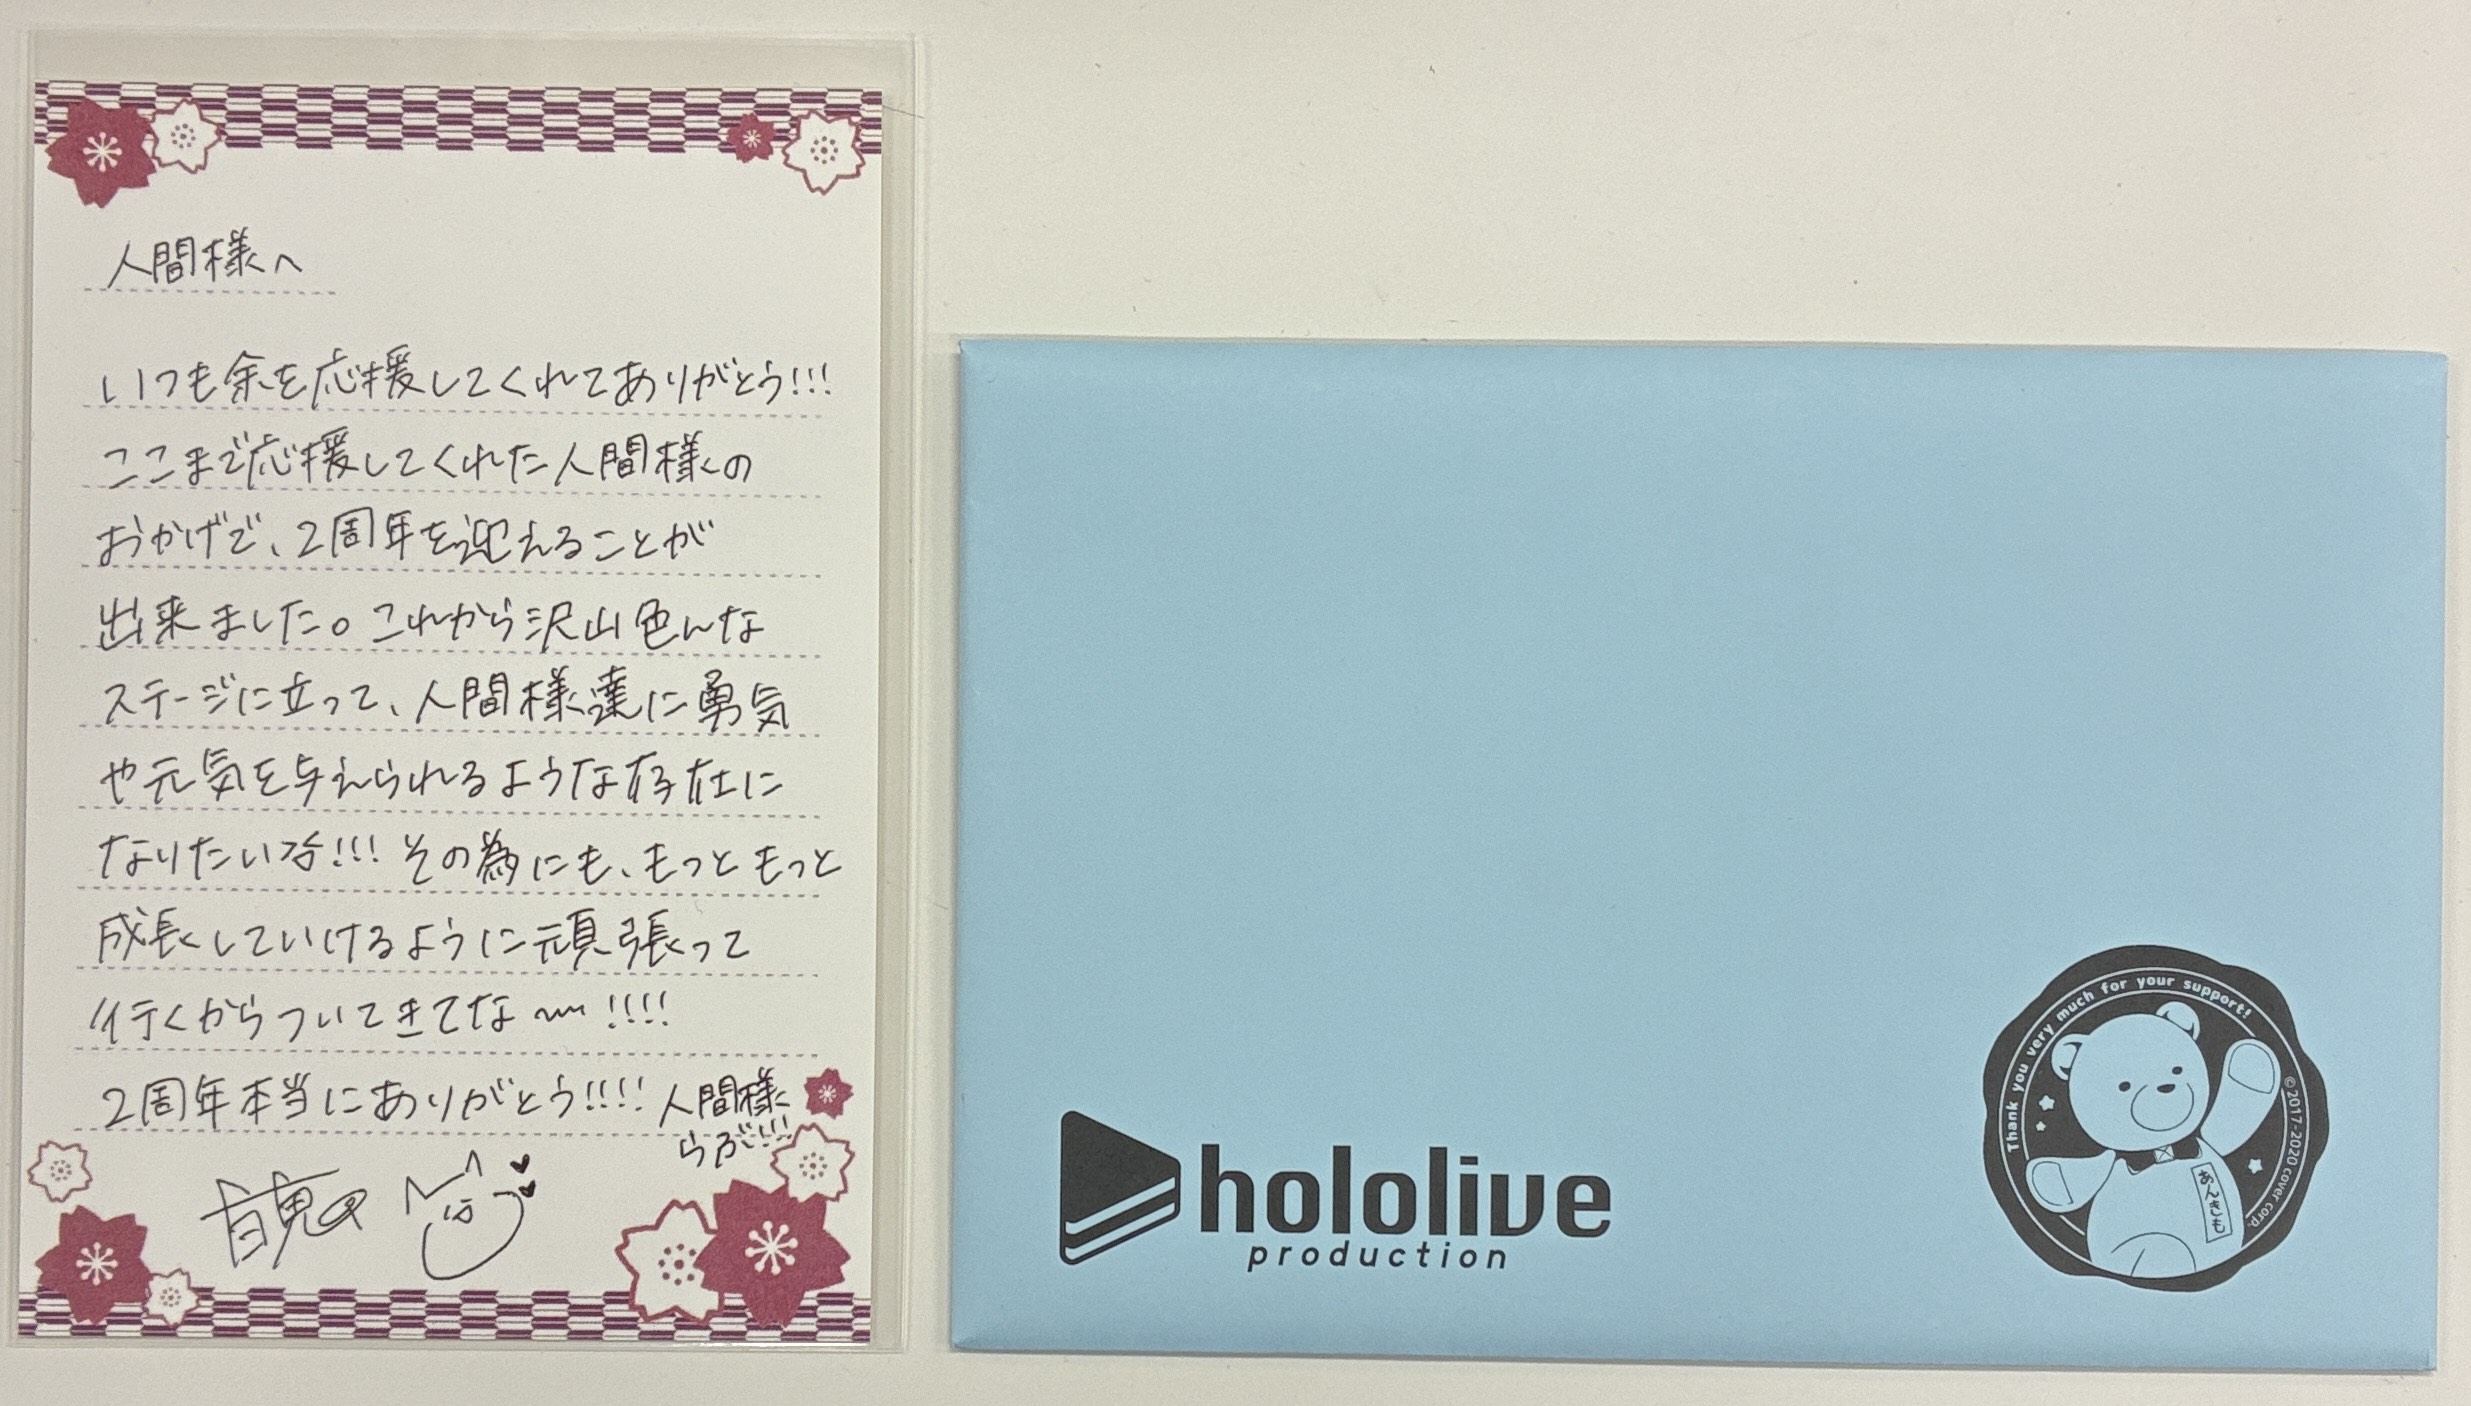 人間様へ
いつも余を応援してくれてありがとう!!!
ここまで応援してくれた人間様の
おかげで、2周年を迎えることが
出来ました。これから沢山色んな
ステージに立って、人間様達に勇気
や元気を与えられるような存在に
なりたい余!!! その為にも、もっともっと
成長していけるように頑張って
行くからついてきてな〜!!!!
2周年本当にありがとう!!!! 人間様
らぶ!!!
hololive
production
Thank you very much for your support!
©2017-2020 cover corp.
あんきも